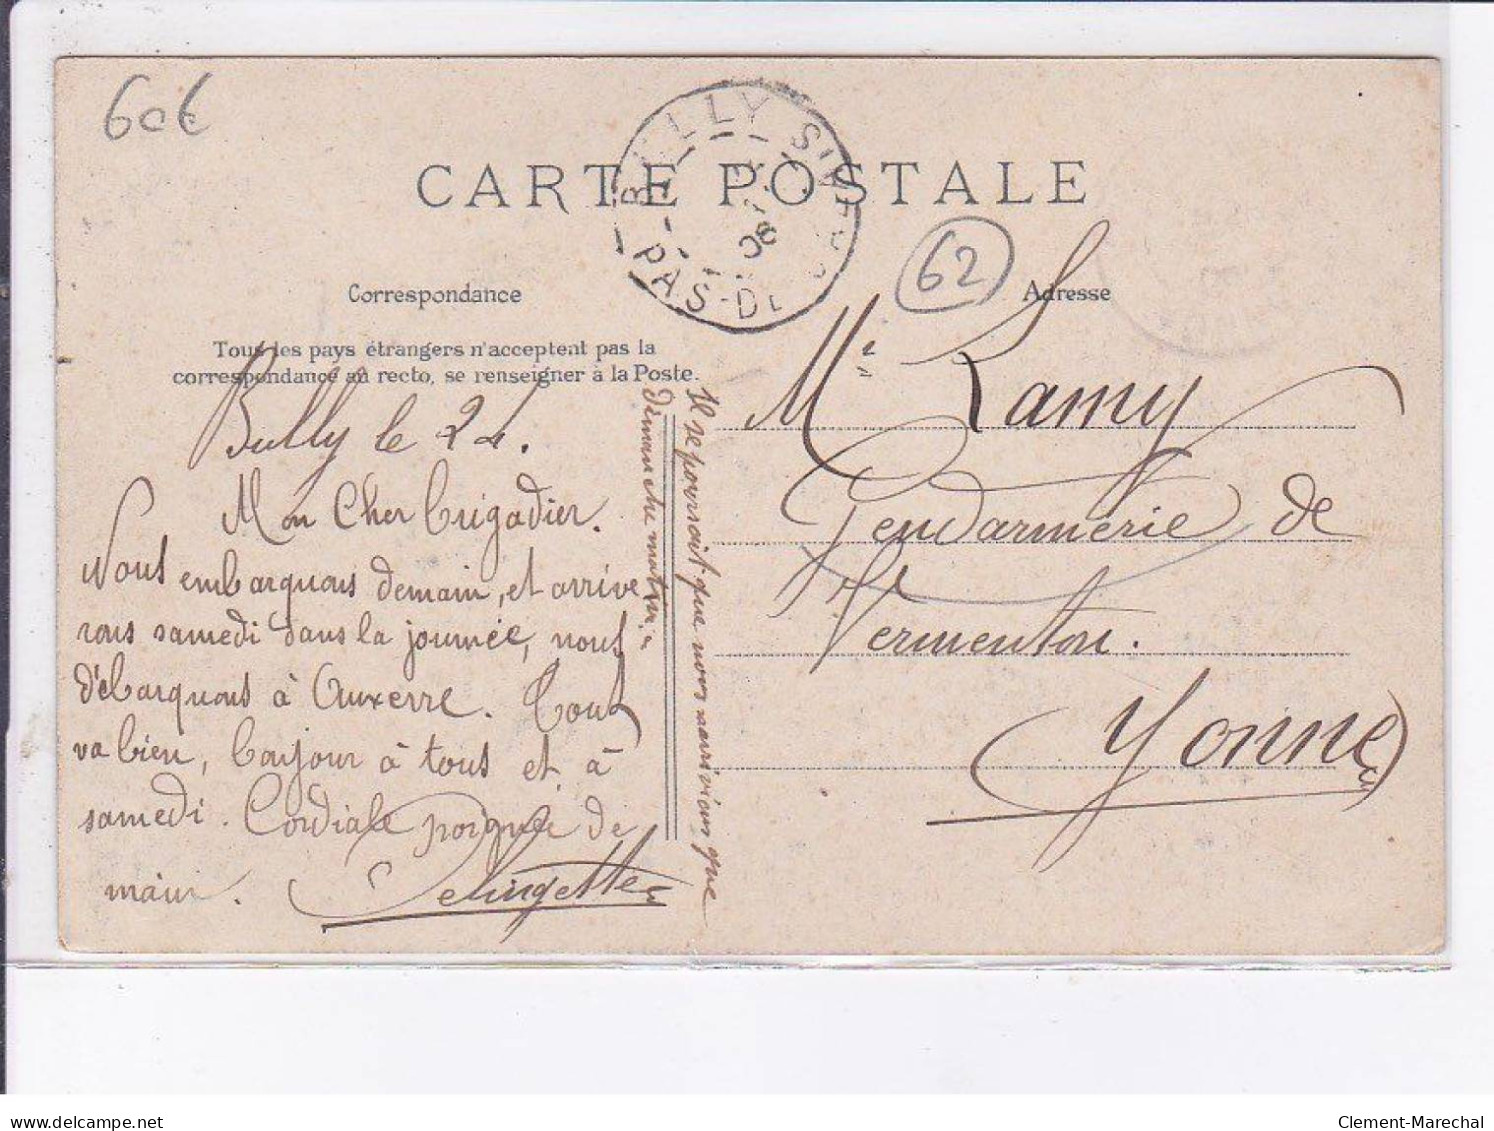 60€
CARTE POSTALE
BILLY
PAS-DE
08
62
Correspondance
Adresse
Tous les pays étrangers n'acceptent pas la
correspondance au recto, se renseigner à la Poste.
Bully le 24.
Mon Cher Brigadier.
Nous embarquons demain, et arrive
rons samedi dans la journée, nous
débarquons à Auxerre. Tout
va bien, bonjour à tous et à
samedi. Cordiale poignée de
main.
Il se pourrait que nous n'arrivions que
dimanche matin.
Mr Lamy
Gendarmerie de
Vermenton.
Yonne
delcampe.net
Clement-Marechal